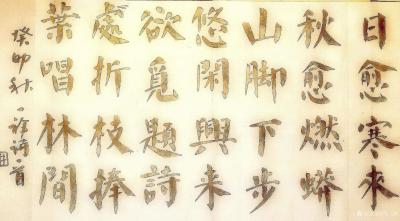 日愈寒來
秋愈燃蟒
山脚下步
悠閑興來
欲覓題詩
處折枝捧
葉唱林間
癸卯秋